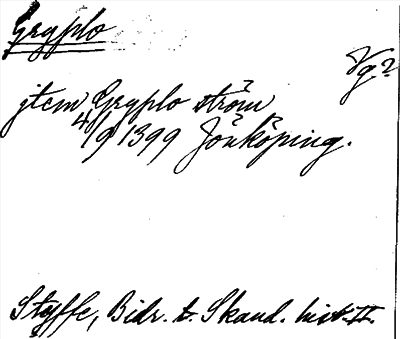 Gryplo
Vg?
jtem Gryplo ström
4/9 1399 Jönköping.
Styffe, Bidr. t. Skand. hist. II.